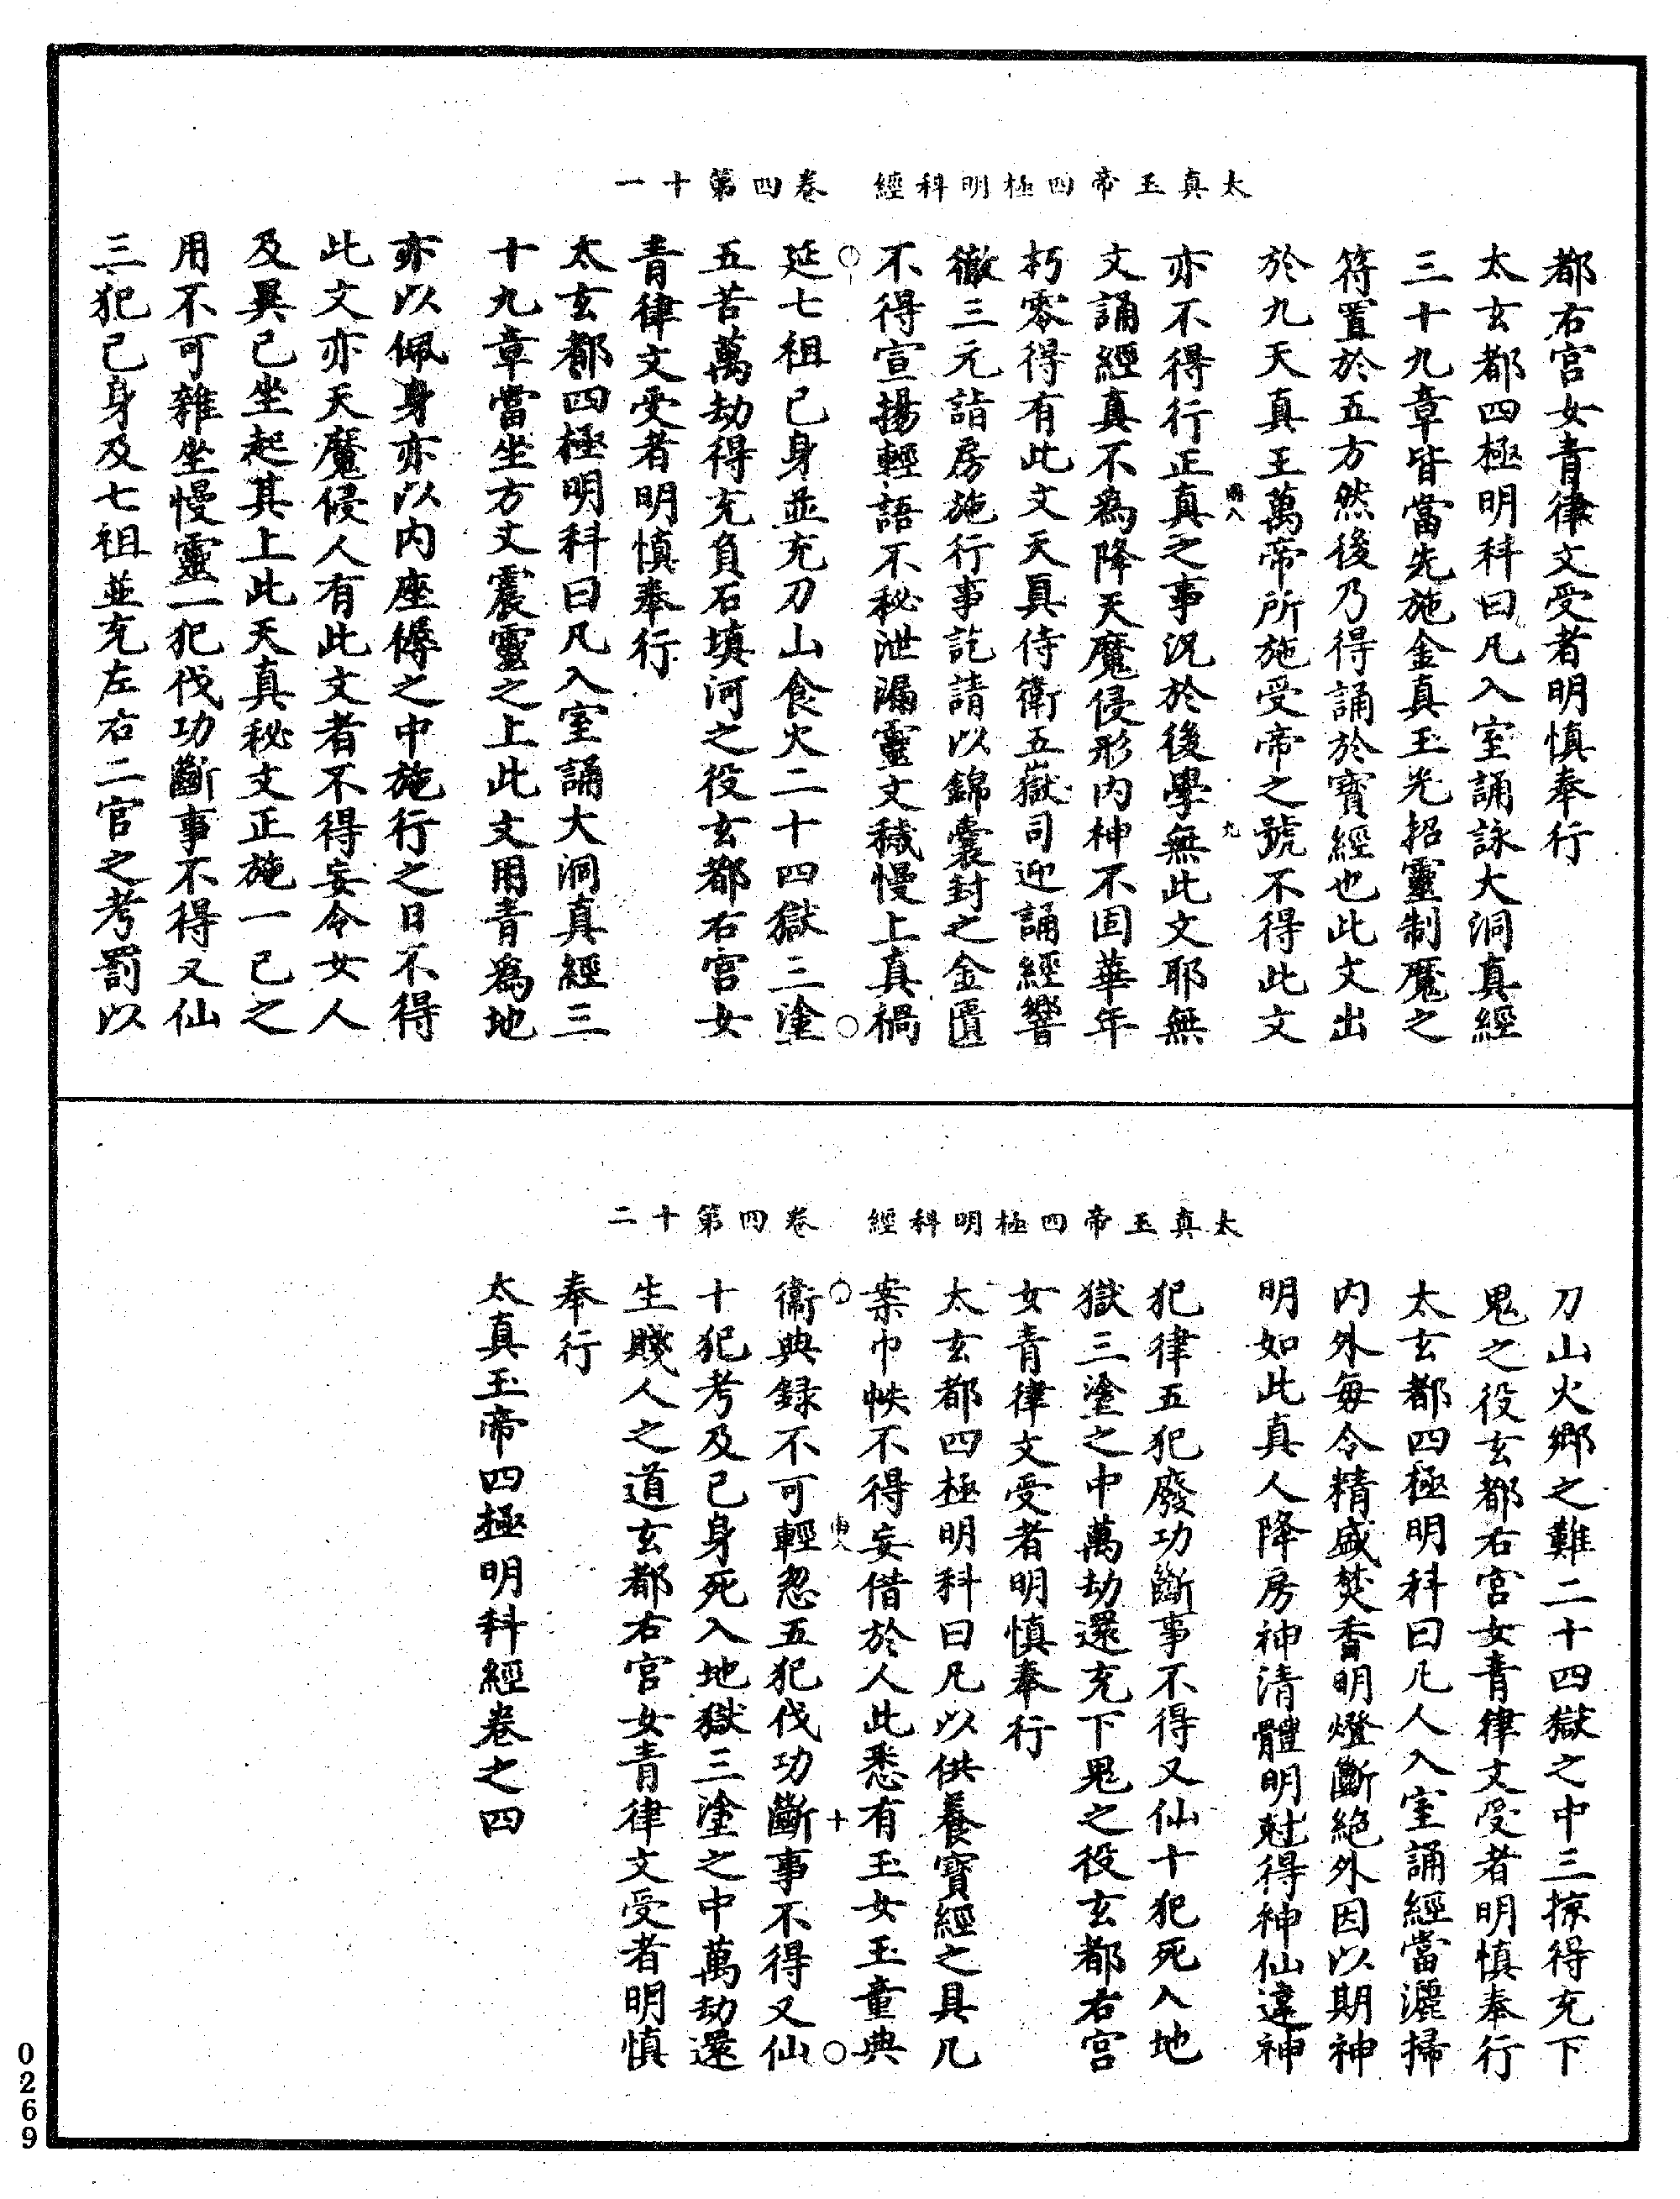 太真玉帝四極明科經　卷四第十一
都右宮女青律文受者明慎奉行
太玄都四極明科曰凡入室誦詠大洞真經
三十九章皆當先施金真玉光招靈制魔之
符置於五方然後乃得誦於寶經也此文出
於九天真王萬帝所施受帝之號不得此文
亦不得行正真之事況於後學無此文耶無
文誦經真不為降天魔侵形内神不固華年
朽零得有此文天真侍衛五嶽司迎誦經響
徹三元詣房施行事訖請以錦囊封之金匱
不得宣揚輕語不秘泄漏靈文穢慢上真禍
延七祖己身並充刀山食火二十四獄三塗
五苦萬劫得充負石填河之役玄都右宮女
青律文受者明慎奉行
太玄都四極明科曰凡入室誦大洞真經三
十九章當坐方丈震靈之上此文用青為地
亦以佩身亦以内座褥之中施行之日不得
此文亦天魔侵人有此文者不得妄令女人
及異己坐起其上此天真秘文正施一己之
用不可雜坐慢靈一犯伐功斷事不得又仙
三犯己身及七祖並充左右二官之考罰以
太真玉帝四極明科經　卷四第十二
刀山火鄉之難二十四獄之中三掠得充下
鬼之役玄都右宮女青律文受者明慎奉行
太玄都四極明科曰凡人入室誦經當灑掃
内外每令精盛焚香明燈斷絕外因以期神
明如此真人降房神清體明尅得神仙違神
犯律五犯廢功斷事不得又仙十犯死入地
獄三塗之中萬劫還充下鬼之役玄都右宮
女青律文受者明慎奉行
太玄都四極明科曰凡以供養寶經之具几
案巾帙不得妄借於人此悉有玉女玉童典
衛典録不可輕忽五犯伐功斷事不得又仙
十犯考及己身死入地獄三塗之中萬劫還
生賤人之道玄都右宮女青律文受者明慎
奉行
太真玉帝四極明科經卷之四
0269